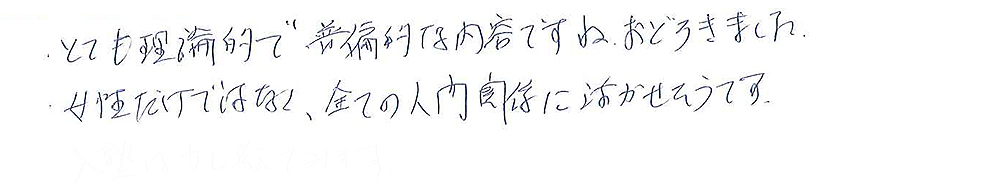 ・とても理論的で普偏的な内容ですね。おどろきました。
・女性だけではなく、全ての人間関係に活かせそうです。